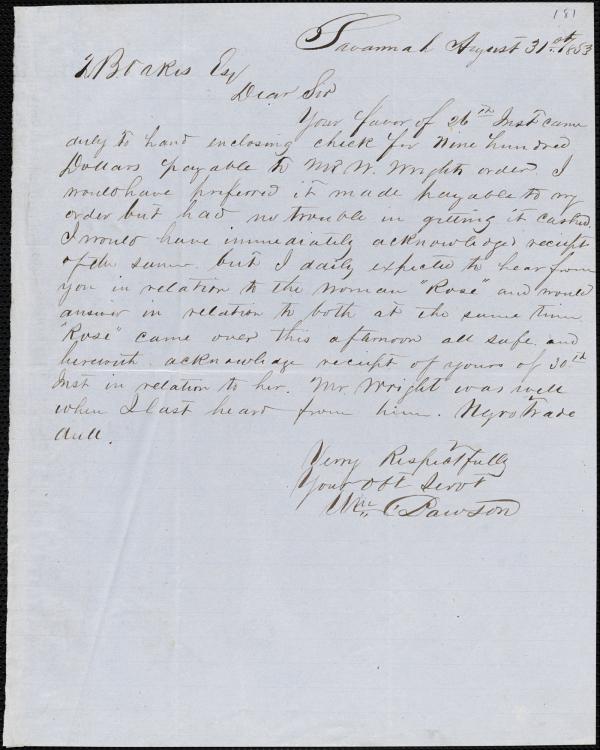 181
Savannah August 31st. 1853
Z B Oakes Esq
Dear Sir
Your favor of 26th Inst came
duly to hand enclosing check for Nine hundred
Dollars payable to Mr W. Wrights order. I
would have preferred it made payable to my
order but had no trouble in getting it cashed.
I would have immediately acknowledged receipt
of the same. but I daily expected to hear from
you in relation to the woman "Rose" and would
answer in relation to both at the same time
"Rose" came over this afternoon all safe. and
herewith acknowledge receipt of yours of 30th
Inst in relation to her. Mr. Wright was well
when I last heard from him. Negro Trade
dull.
Verry Respectfully
Your Obt Servt
Wm C Dawson